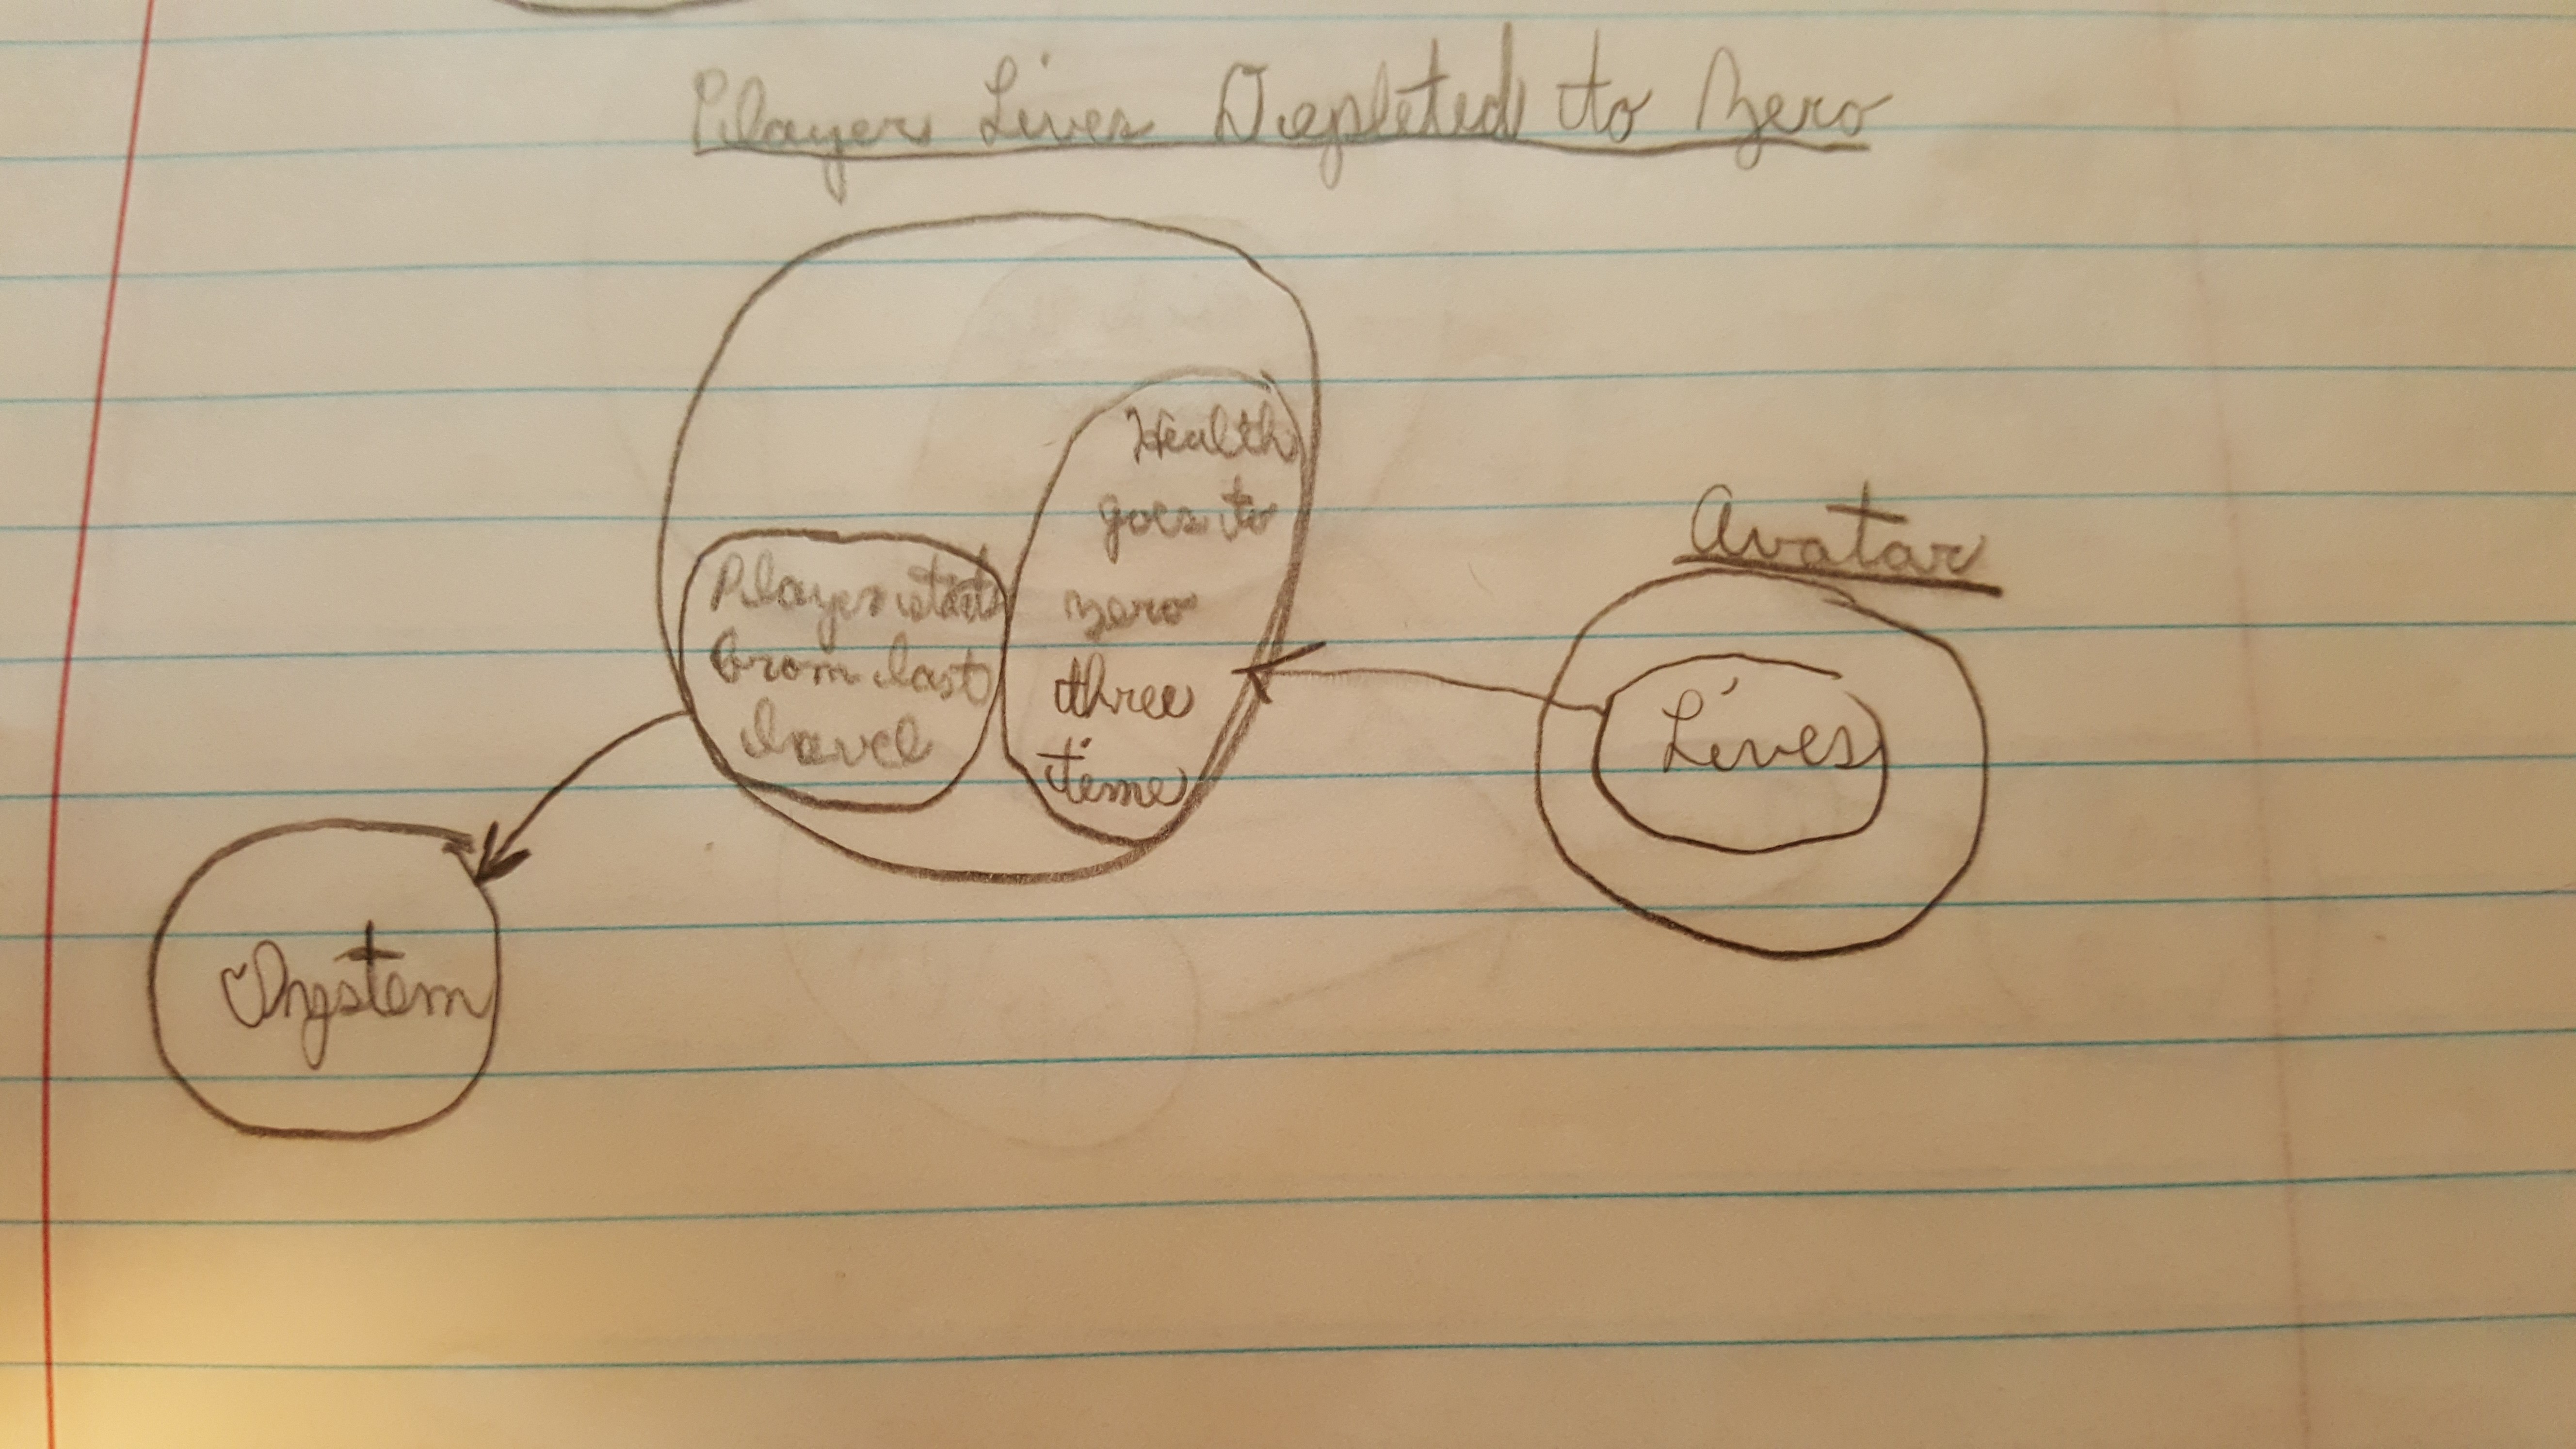 Player Lives Depleted to Zero
Health
goes to
zero
three
time
Player starts
from last
level
Avatar
Lives
System